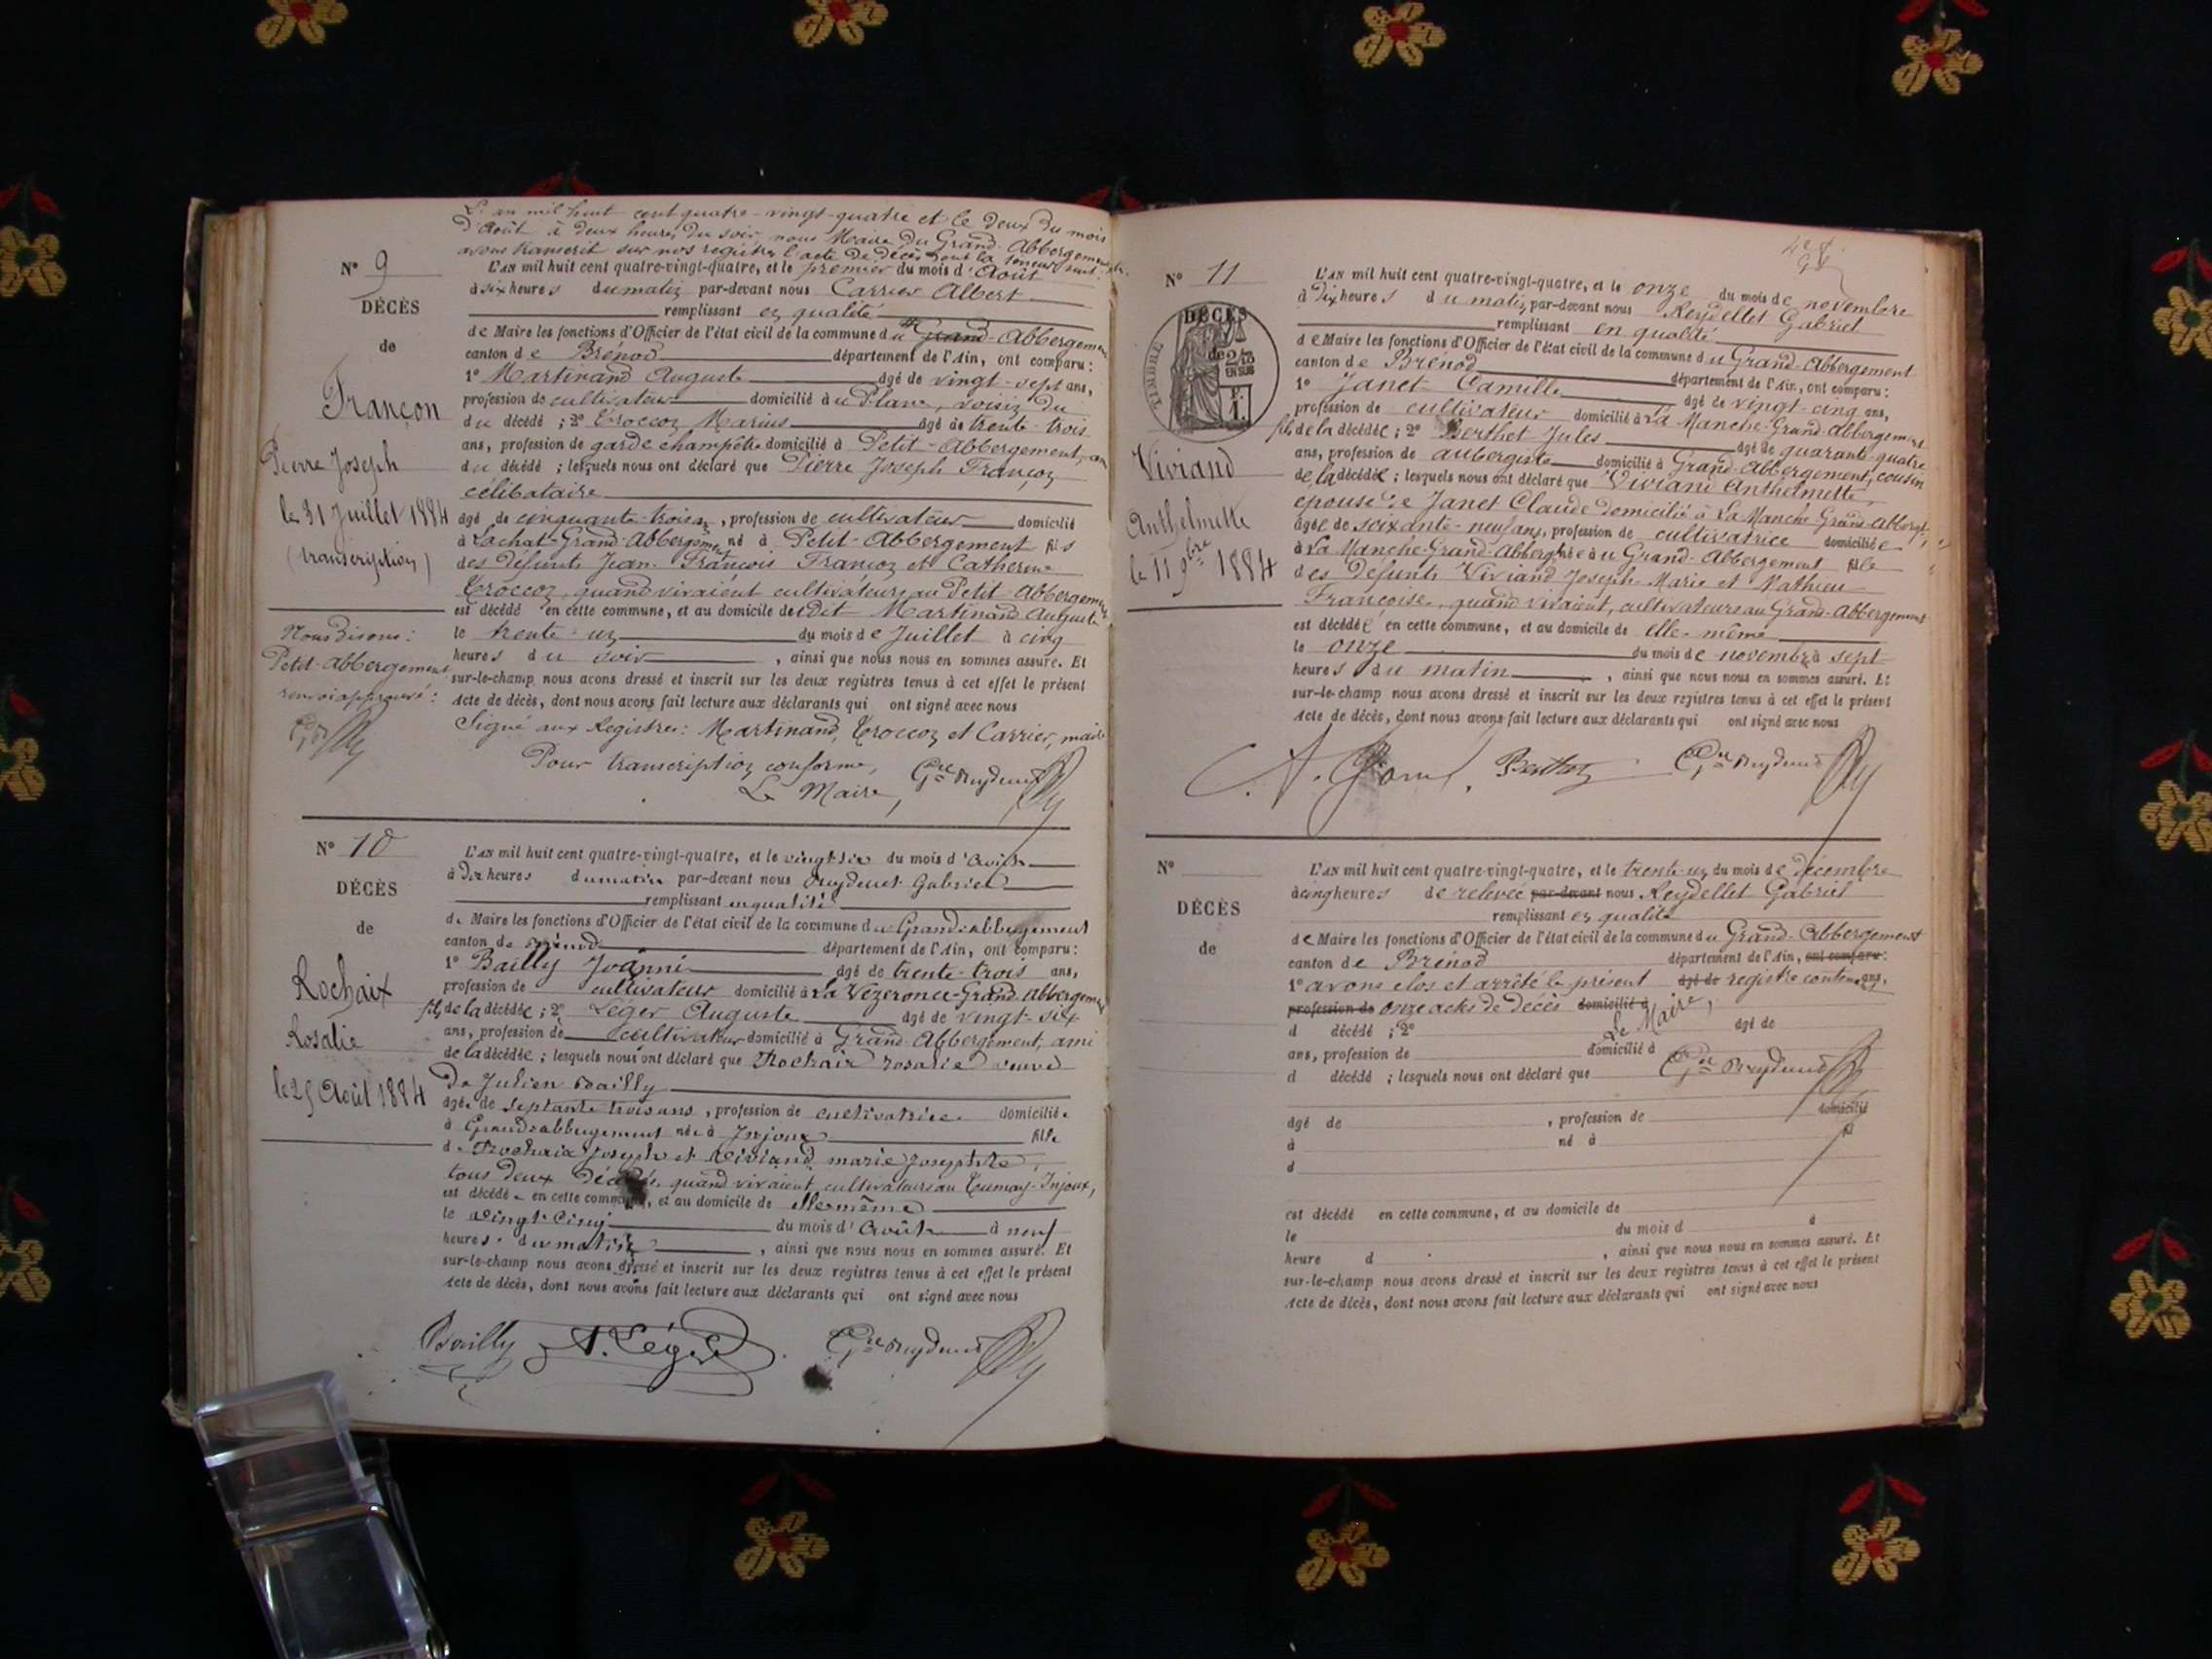 L'an mil huit cent quatre-vingt-quatre et le deux du mois
d'Août à deux heures du soir nous Maire du Grand-Abbergement
avons transcrit sur nos registres l'acte de décès dont la teneur suit:
N° 9
DÉCÈS
de
Françon
Pierre Joseph
le 31 Juillet 1884
(transcription)
Nous disons:
Petit-Abbergement
renvoi approuvé:
L'AN mil huit cent quatre-vingt-quatre, et le premier du mois d'Août
à six heures du matin par-devant nous Carrier Albert
remplissant en qualité
de Maire les fonctions d'Officier de l'état civil de la commune du Grand-Abbergement
canton de Brénod département de l'Ain, ont comparu:
1° Martinand Auguste âgé de vingt-sept ans,
profession de cultivateur domicilié au Plane, voisin du
du décédé; 2° Troccon Marius âgé de trente-trois
ans, profession de garde champêtre domicilié à Petit-Abbergement, ami
du décédé; lesquels nous ont déclaré que Pierre Joseph Françon
célibataire
âgé de cinquante-trois ans, profession de cultivateur domicilié
à Lachat-Grand-Abbergement né à Petit-Abbergement fils
des défunts Jean-François Françon et Catherine
Troccon, quand vivaient cultivateurs au Petit-Abbergement
est décédé en cette commune, et au domicile de dit Martinand Auguste
le trente-un du mois de Juillet à cinq
heures du soir, ainsi que nous nous en sommes assuré. Et
sur-le-champ nous avons dressé et inscrit sur les deux registres tenus à cet effet le présent
Acte de décès, dont nous avons fait lecture aux déclarants qui ont signé avec nous
Signé aux Registres: Martinand, Troccon et Carrier, maire
Pour transcription conforme,
Le Maire,
N° 10
DÉCÈS
de
Rochaix
Rosalie
le 25 Août 1884
L'AN mil huit cent quatre-vingt-quatre, et le vingt-six du mois d'Août
à dix heures du matin par-devant nous Reydellet Gabriel
remplissant en qualité
de Maire les fonctions d'Officier de l'état civil de la commune du Grand-abbergement
canton de Brénod département de l'Ain, ont comparu:
1° Bailly Joanni âgé de trente-trois ans,
profession de cultivateur domicilié à La Vézeronce-Grand-Abbergement
fils de la décédée; 2° Léger Auguste âgé de vingt-six
ans, profession de cultivateur domicilié à Grand-Abbergement, ami
de la décédée; lesquels nous ont déclaré que Rochaix rosalie veuve
De Julien Bailly
âgée de septante trois ans, profession de cultivatrice domiciliée
à Grand-abbergement née à Injoux fille
de Rochaix Joseph et Viviand marie Josephte,
tous deux décédés, quand vivaient cultivateurs au Injoux,
est décédée en cette commune, et au domicile de elle même
le vingt cinq du mois d'Août à neuf
heures du matin, ainsi que nous nous en sommes assuré. Et
sur-le-champ nous avons dressé et inscrit sur les deux registres tenus à cet effet le présent
Acte de décès, dont nous avons fait lecture aux déclarants qui ont signé avec nous
Bailly A. Léger
N° 11
DÉCÈS
TIMBRE
de
EN SUS
Viviand
Anthelmette
le 11 9bre 1884
L'AN mil huit cent quatre-vingt-quatre, et le onze du mois de novembre
à dix heures du matin, par-devant nous Reydellet Gabriel
remplissant en qualité
de Maire les fonctions d'Officier de l'état civil de la commune du Grand-Abbergement
canton de Brénod département de l'Ain, ont comparu:
1° Janet Camille âgé de vingt-cinq ans,
profession de cultivateur domicilié à La Manche-Grand-Abbergement
fils de la décédée; 2° Berthet Jules âgé de quarante-quatre
ans, profession de aubergiste domicilié à Grand-Abbergement, cousin
de la décédée; lesquels nous ont déclaré que Viviand Anthelmette
épouse de Janet Claude domicilié à La Manche-Grand-Abbergt,
âgée de soixante-neuf ans, profession de cultivatrice domiciliée
à La Manche-Grand-Abbergt née à u Grand-Abbergement fille
des défunts Viviand Joseph-Marie et Mathieu
Françoise, quand vivaient, cultivateurs au Grand-Abbergement
est décédée en cette commune, et au domicile de elle-même
le onze du mois de novembre à sept
heures du matin, ainsi que nous nous en sommes assuré. Et
sur-le-champ nous avons dressé et inscrit sur les deux registres tenus à cet effet le présent
Acte de décès, dont nous avons fait lecture aux déclarants qui ont signé avec nous
Berthet
N°
DÉCÈS
de
L'AN mil huit cent quatre-vingt-quatre, et le trente-un du mois de décembre
à cinq heures de relevée par-devant nous Reydellet Gabriel
remplissant en qualité
de Maire les fonctions d'Officier de l'état civil de la commune du Grand-Abbergement
canton de Brénod département de l'Ain, ont comparu:
1° avons clos et arrêté le présent âgé de registre contenant ans,
profession de onze actes de décès domicilié à
Le Maire,
d décédé; 2° âgé de
ans, profession de domicilié à
d décédé; lesquels nous ont déclaré que
âgé de , profession de domicilié
à né à fil
d
est décédé en cette commune, et au domicile de
le du mois d à
heure d , ainsi que nous nous en sommes assuré. Et
sur-le-champ nous avons dressé et inscrit sur les deux registres tenus à cet effet le présent
Acte de décès, dont nous avons fait lecture aux déclarants qui ont signé avec nous